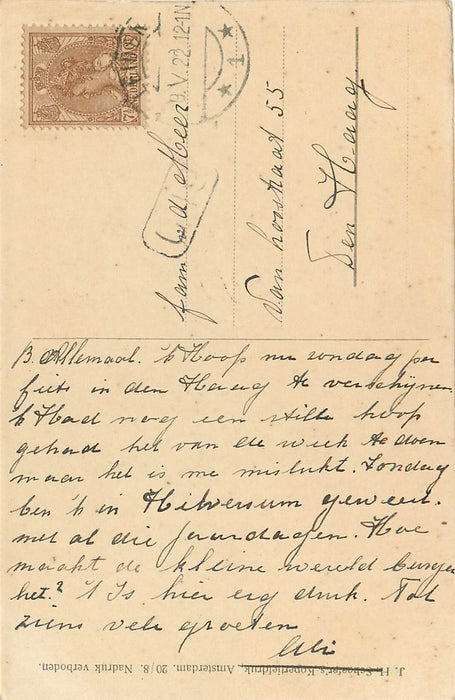 7½ CENT
V. 22. 12-1N
1
fam v. d. Meer
Van Loostraat 55
Den Haag
B. Allemaal. 'k Hoop nu zondag per
fiets in den Haag te verschijnen.
'k Had nog een stille hoop
gehad het van de week te doen
maar het is me mislukt. Zondag
ben 'k in Hilversum geweest.
met al die jaardagen. Hoe
maakt de kleine wereld burger
het? 't Is hier erg druk. Tot
ziens vele groeten
J. H. Schaefer's Kopergietdruk, Amsterdam. 20/8. Nadruk verboden.